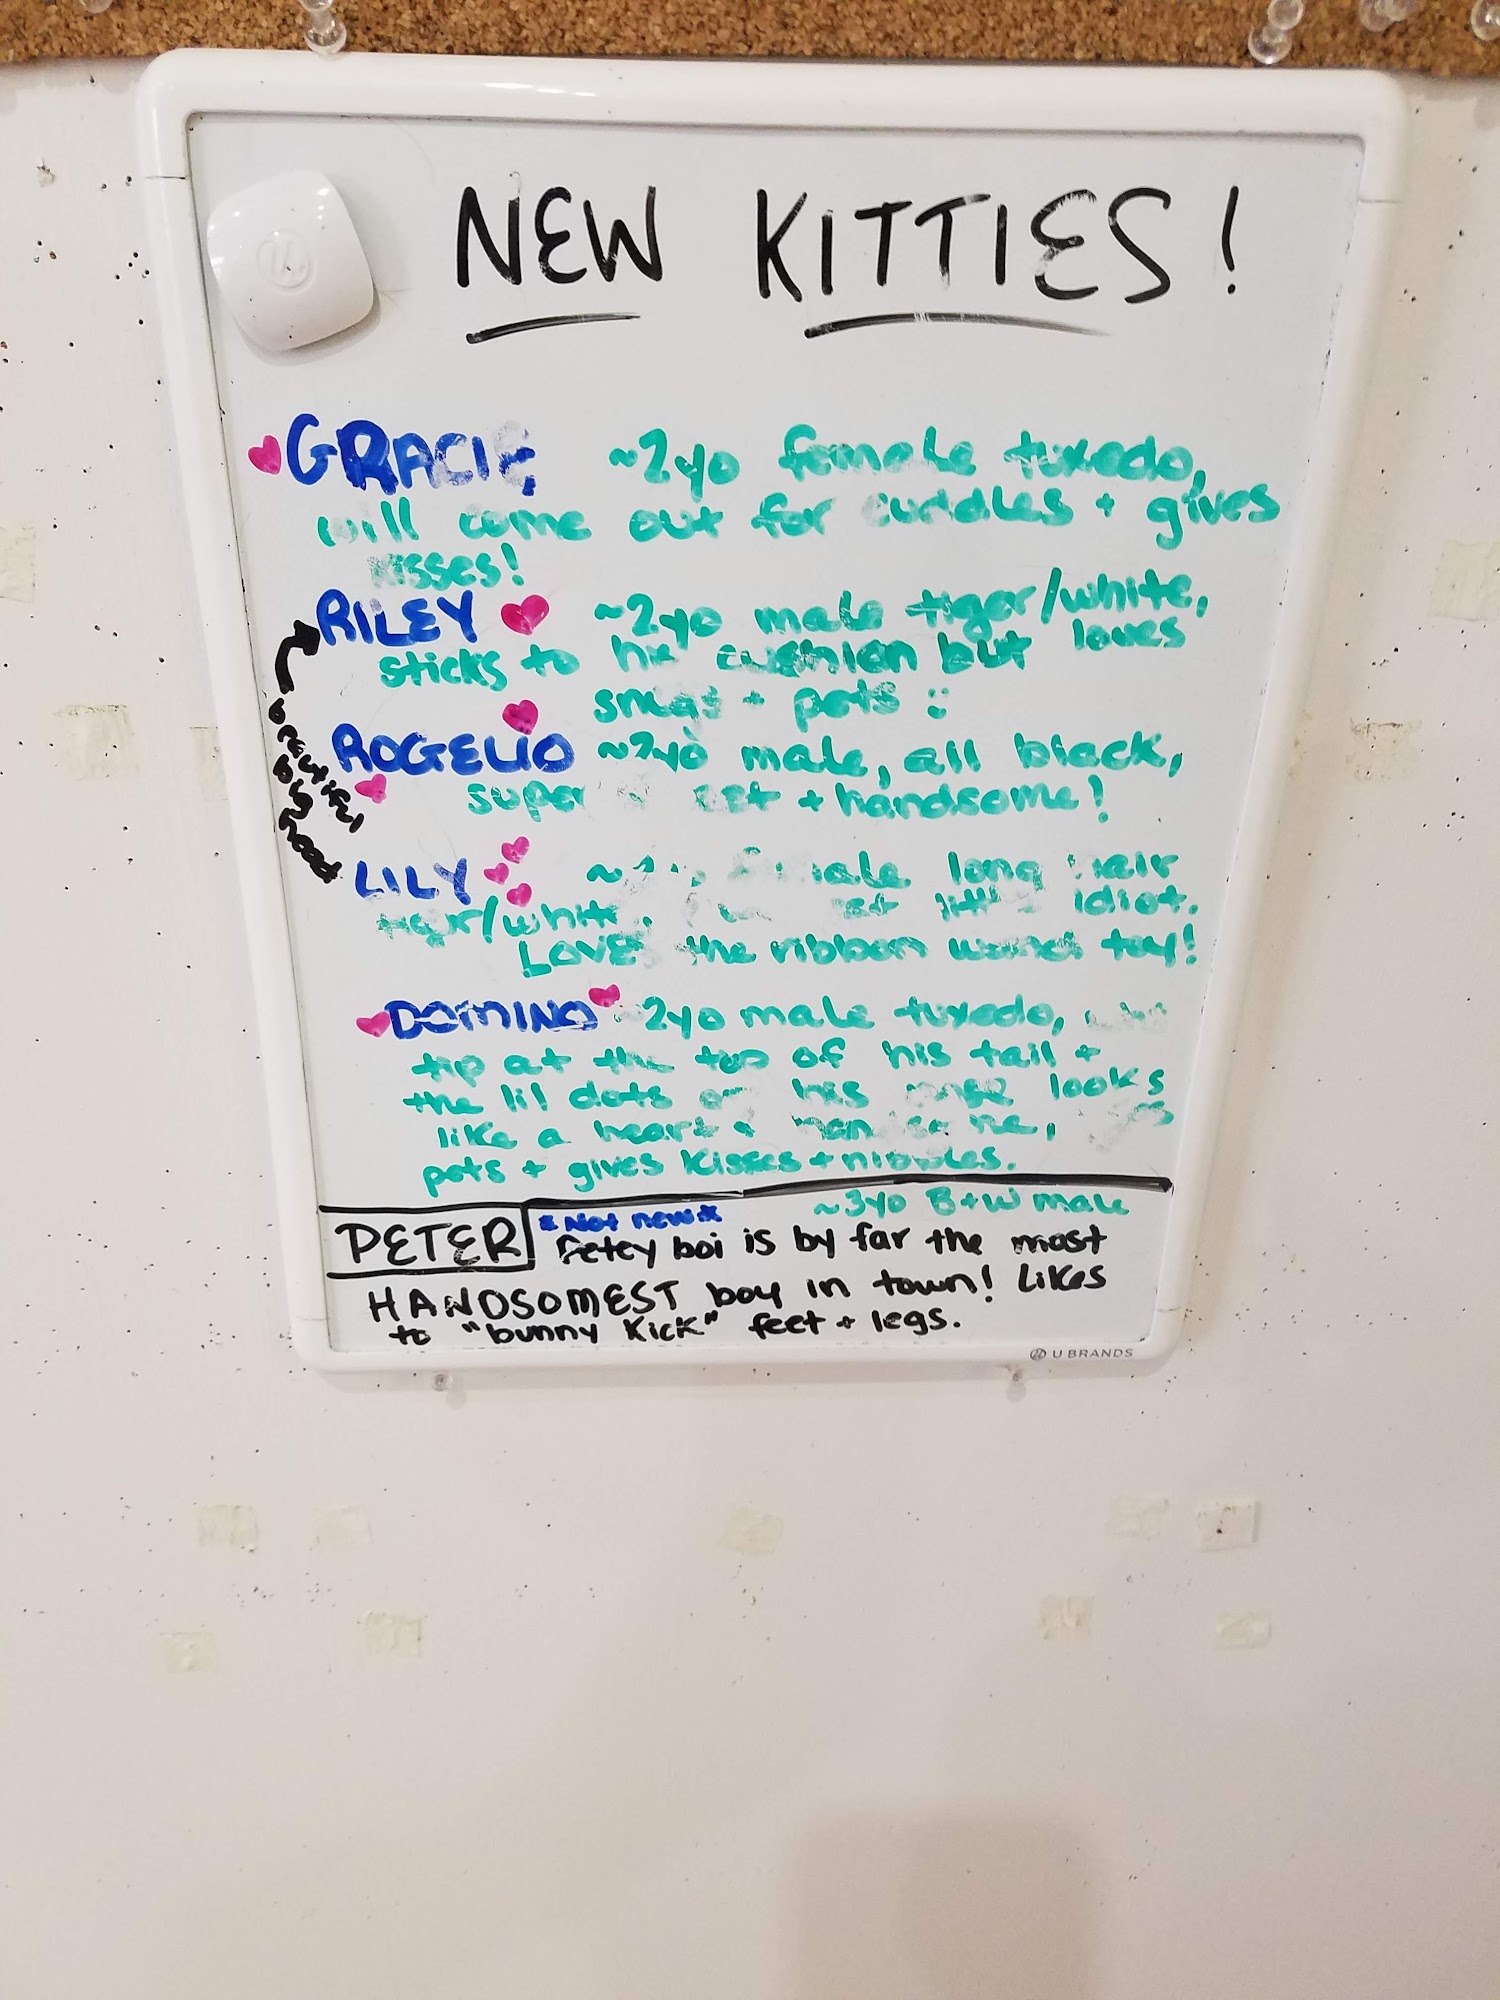 NEW KITTIES!
GRACIE ~2yo female tuxedo,
will come out for cuddles + gives
kisses!
RILEY ~2yo male tiger/white,
sticks to his cushion but loves
snugs + pets :)
beautiful
big head
ROGELIO ~2yo male, all black,
super + handsome!
LILY ~ female long hair
tiger/white. little idiot.
LOVES the ribbon wand toy!
DOMINO ~2yo male tuxedo,
tip at the top of his tail +
the lil dots on his nose looks
like a heart +
pets + gives kisses + nibbles.
~3yo B+W male
PETER *Not new* Petey boi is by far the most
HANDSOMEST boy in town! Likes
to "bunny kick" feet + legs.
U BRANDS